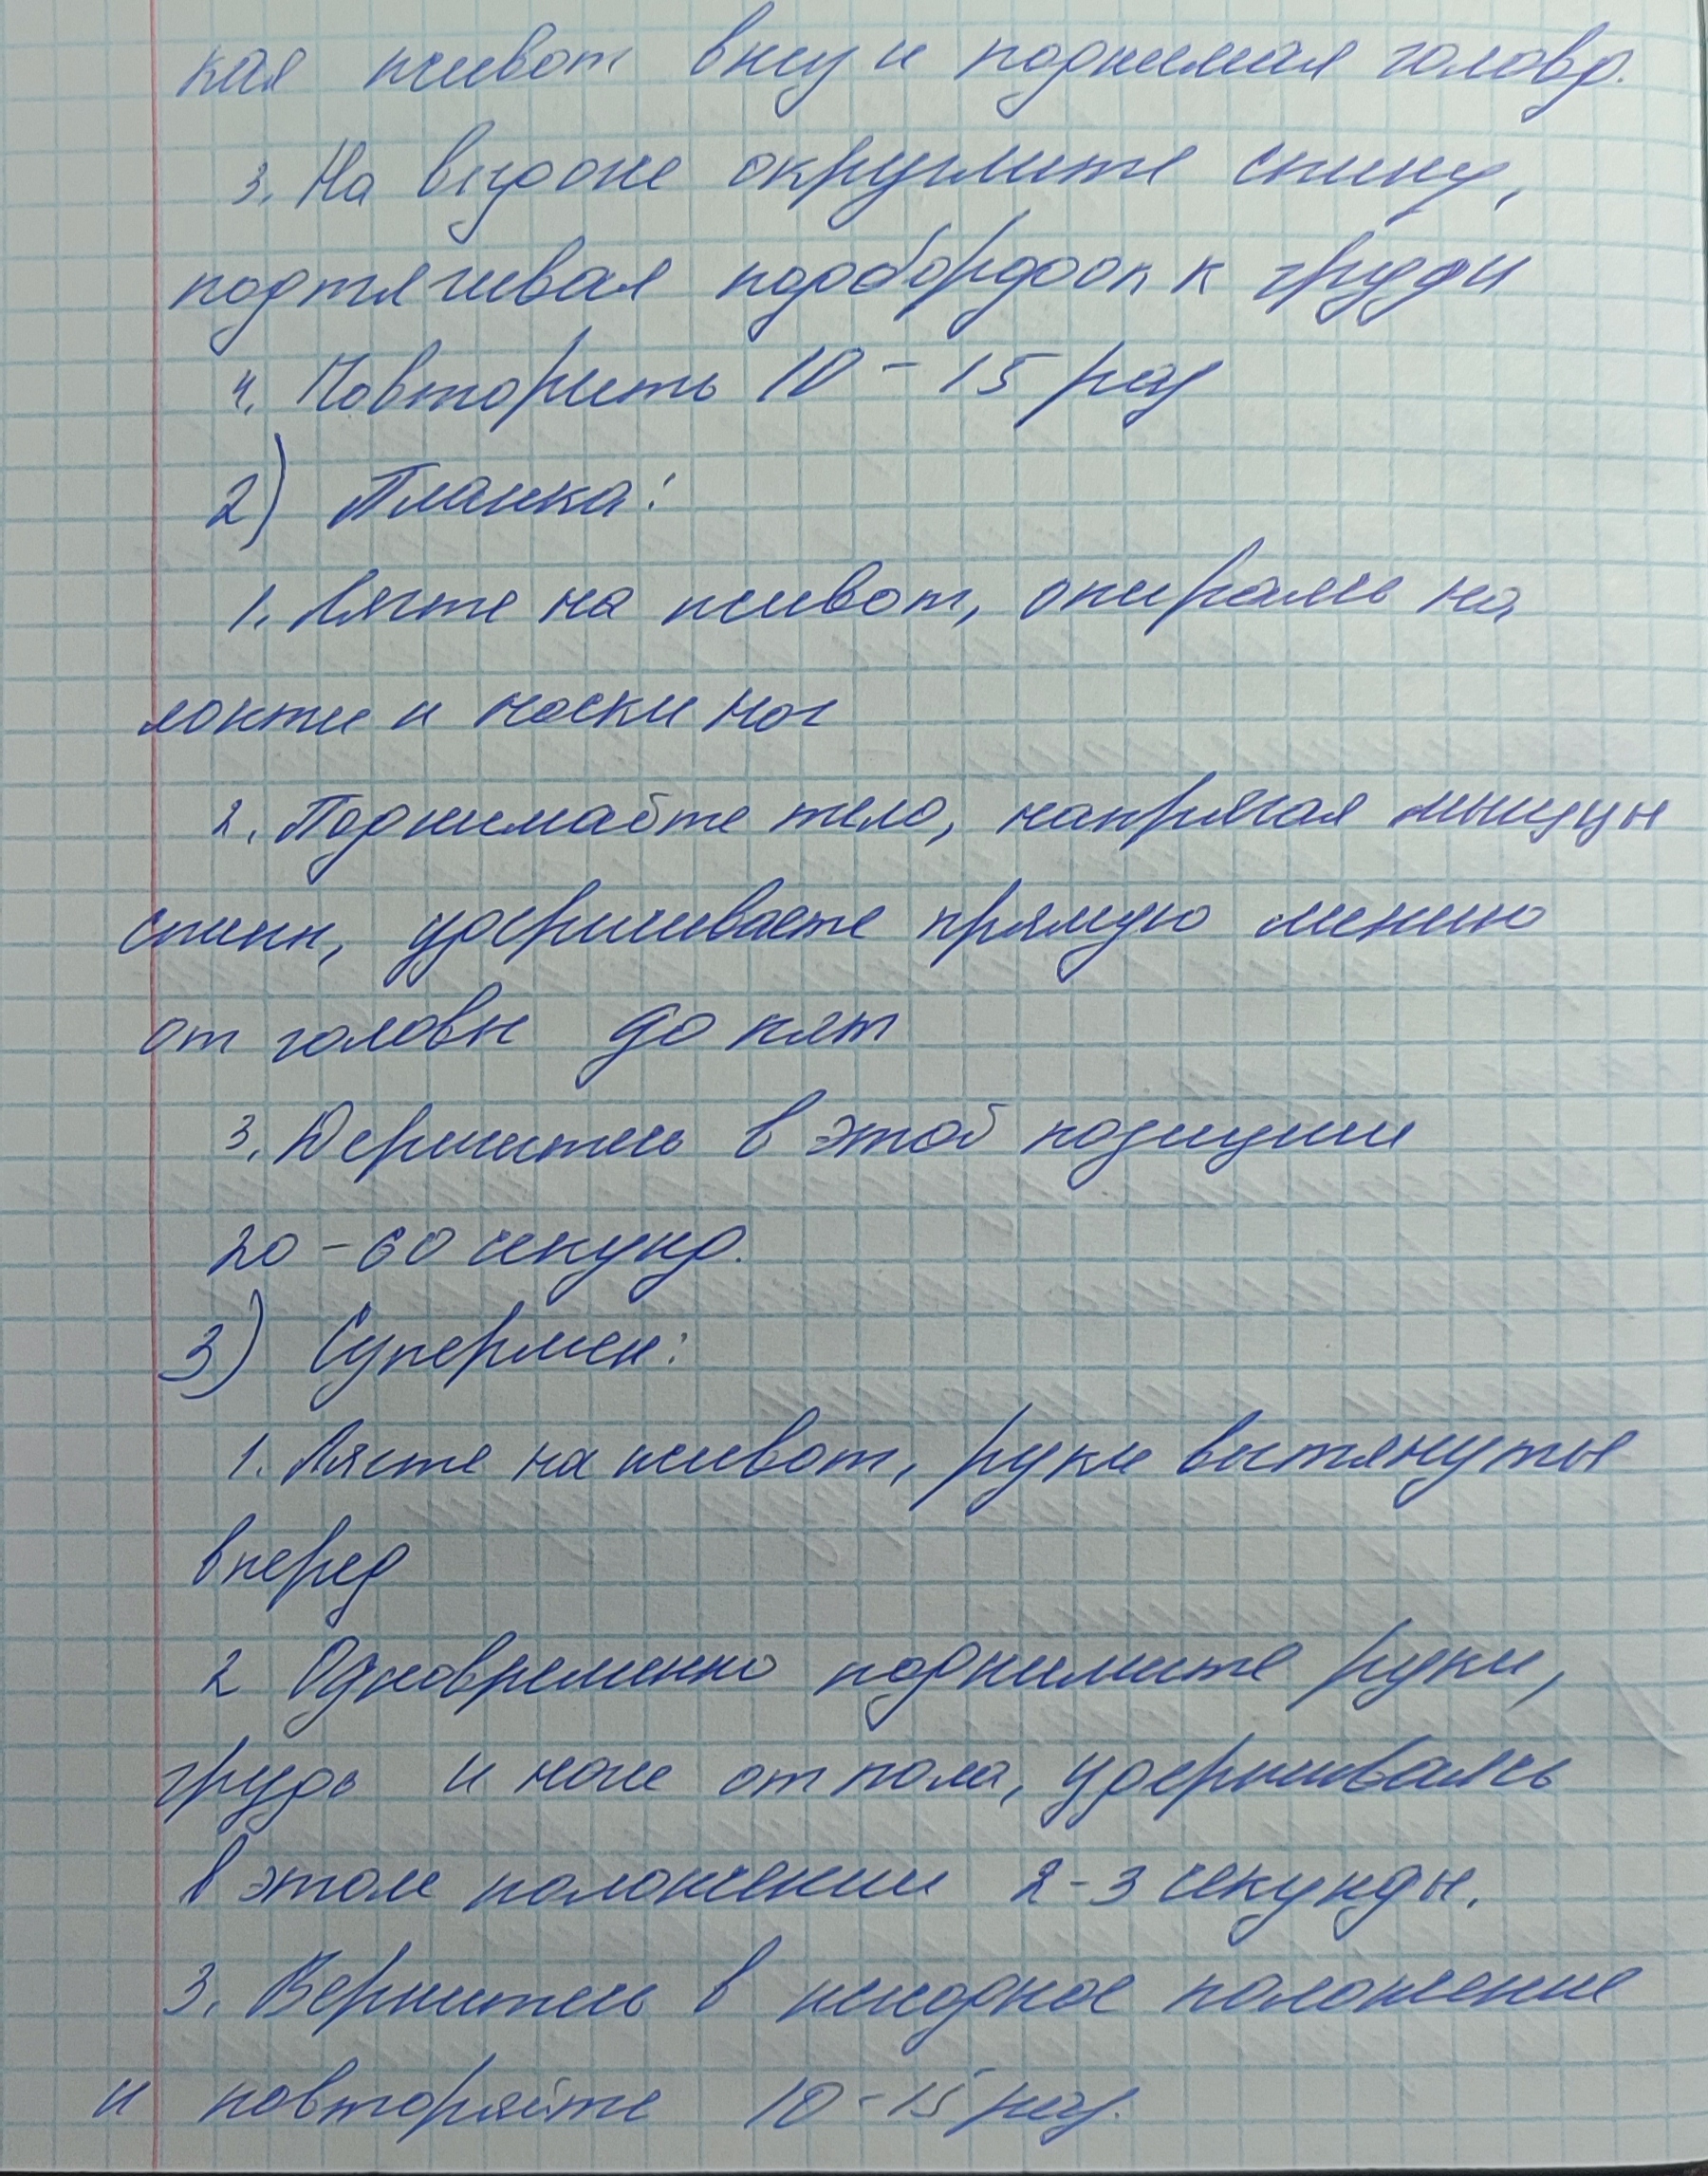 кая живот вниз и поднимая голову.
3. На выдохе округлите спину,
подтягивая подбородок к груди
4. Повторить 10-15 раз
2) Планка:
1. Лягте на живот, опираясь на
локти и носки ног
2. Поднимайте тело, напрягая мышцы
спины, удерживаете прямую линию
от головы до пят
3. Держитесь в этой позиции
20-60 секунд.
3) Супермен:
1. Лягте на живот, руки вытянуты
вперед
2 Одновременно поднимите руки,
грудь и ноги от пола, удерживаясь
в этом положении 2-3 секунды.
3. Вернитесь в исходное положение
и повторяйте 10-15 раз.